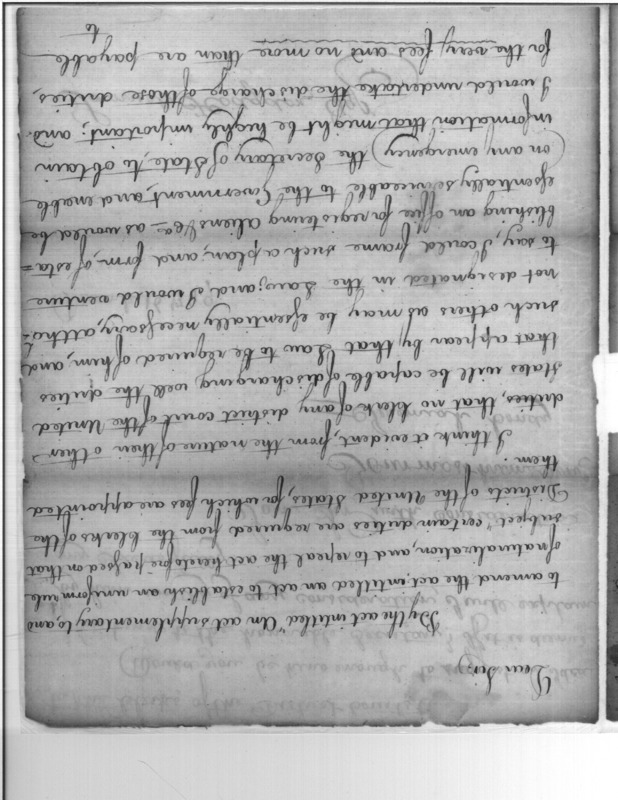 Dear Sir,
By the act intitled "An act supplementary to, and
to amend the act, intitled an act to establish an uniform rule
of naturalization, and to repeal the act heretofore passed on that
subject" certain duties are required from the Clerks of the
Districts of the United States, for which fees are appointed
them.
I think it evident, from the nature of their other
duties, that no clerk of any district court of the United
States will be capable of discharging well the duties
that appear by that Law to be required of him, and
such others as may be essentially necessary, altho'
not designated in the Law; and I would venture
to say, I could frame such a plan, and form, of esta=
blishing an office for registering aliens &ca - as would be
essentially serviceable to the Government, and enable
(on any emergency) the Secretary of State, to obtain
information that might be highly important; and
I would undertake the discharge of those duties,
for the very fees and no more than are payable
to